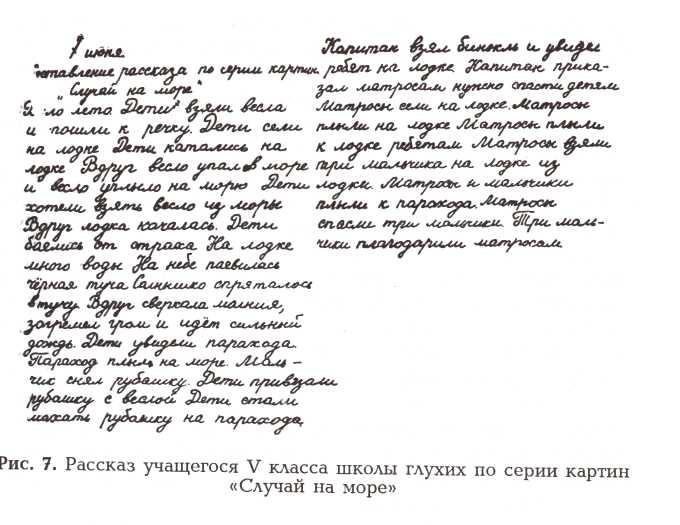 7 июня
Составление рассказа по серии картин
"Случай на море"
Я ло лета Дети взяли весла
и пошли к речку. Дети сели
на лодке Дети катались на
лодке Вдруг весло упал в море
и весло уплыло на морю Дети
хотели взять весло из моры
Вдруг лодка качалась. Дети
баелись от страха На лодке
много воды На небе паевилась
чёрная туча Салнышко спряталось
в тучу. Вдруг сверкала малния,
загремел гром и идёт сильный
дождь. Дети увидели парахода.
Параход плыл на море. Маль-
чик снял рубашку. Дети привязали
рубашку с веслой Дети стали
махать рубашку на парахода.
Капитан взял бинокль и увидел
ребят на лодке. Капитан прика-
зал матросам нужно спасти детям
Матросы сели на лодке. Матросы
плыли на лодке Матросы плыли
к лодке ребятам Матросы взяли
три мальчика на лодке из
лодки. Матросы и мальчики
плыли к парахода. Матросы
спасли три мальчики. Три маль-
чики плагодарили матросам
Рис. 7. Рассказ учащегося V класса школы глухих по серии картин
«Случай на море»